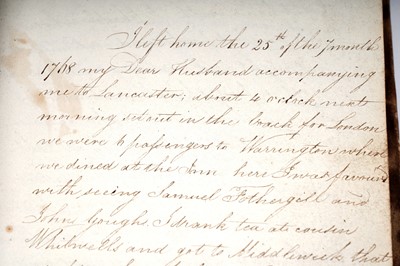 I left home the 25th of the 7 month
1768 my Dear Husband accompanying
me to Lancaster; about 4 o'clock next
morning set out in the Coach for London
we were 6 passengers to Warrington where
we dined at the Inn here I was favour'd
with seeing Samuel Fothergill and
John Goughs. I drank tea at cousin
Whitwells and got to Middlewich that